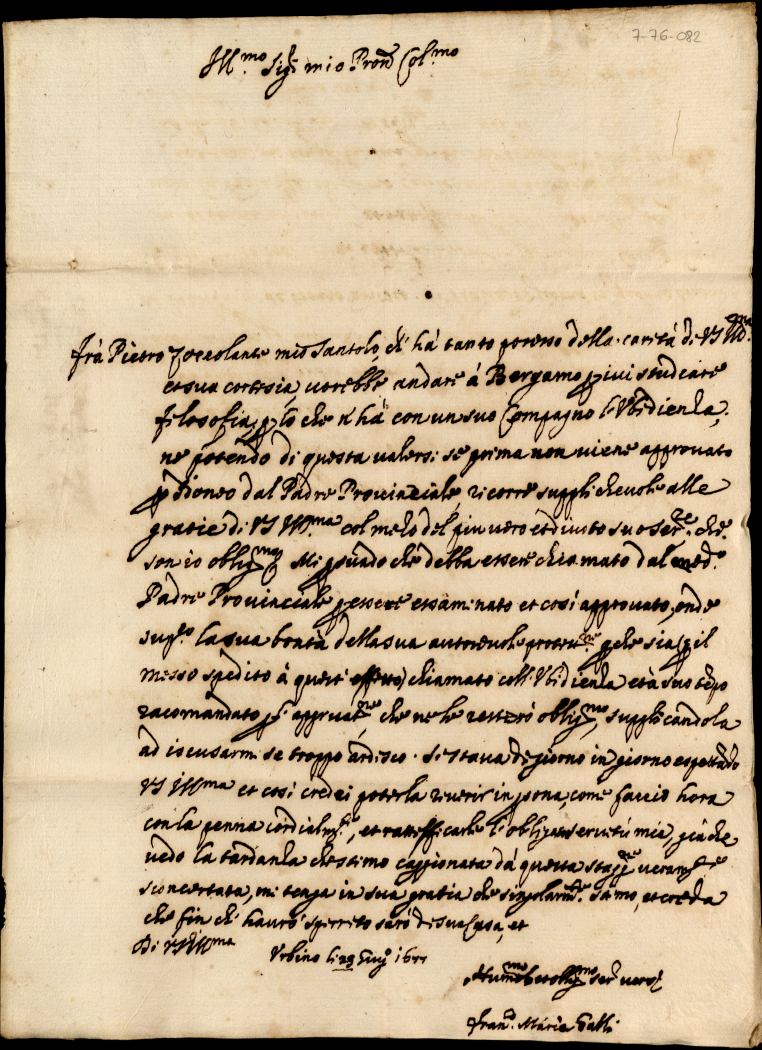 7-76-082
Ill.mo Sig.r mio Pron Col.mo
frà Pietro Zoccolante mio Santolo, ch' há tanto poresso della carità di VS Ill.ma
et sua cortesia, vorebbe andare á Bergamo p ivi studiare
filosofia, p lo che n' há con un suo Compagno l'Ubidienza,
ne potendo di questa valersi se prima non viene approvato
p Idoneo dal Padre Provinciale, ricorre supplichevole alle
gratie di VS Ill.ma col mezo del piu vero et divoto suo ser.re che
son io oblig.mo Mi psuado che debba essere chiamato dal med.o
Padre Provinciale p essere essaminato et cosi approvato, onde
sup.co la sua bontà della sua autorevole protett.ne p che sia (p il
messo spedito á questi effetti) chiamato coll' Ubidienza et à suo tempo
racomandato p l' appruat.ne, che ne le resterò oblig.mo, supplicandola
ad iscusarmi se troppo ardisco. Si stava di giorno in giorno espettando
VS Ill.ma et cosi credei poterla riverir in psona, come faccio hora
con la penna cordialm.te, et rattifficarle l'oblig.ma servitú mia, già che
vedo la tardanza che stimo caggionata dá questa stag.ne veram.te
sconcertata, mi tenga in sua gratia che singolarm.te stimo, et creda
che fin ch' havró spirito saró di sua Casa, et
Di VS Ill.ma
Urbino li 29 Giug.o
Hum.mo et oblig.mo ser.r vero
Fran.co Maria Galli